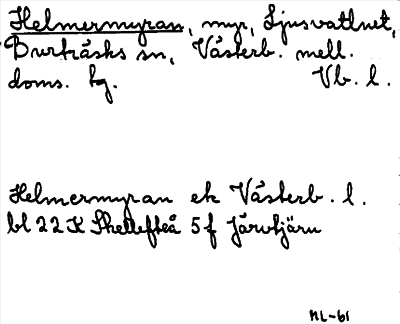 Helmermyran, myr, Ljusvattnet,
Burträsks sn, Västerb. mell.
doms. tg. Vb. l.
Helmermyran ek Västerb. l.
bl 22 K Skellefteå 5 f Järvtjärn
NL-61